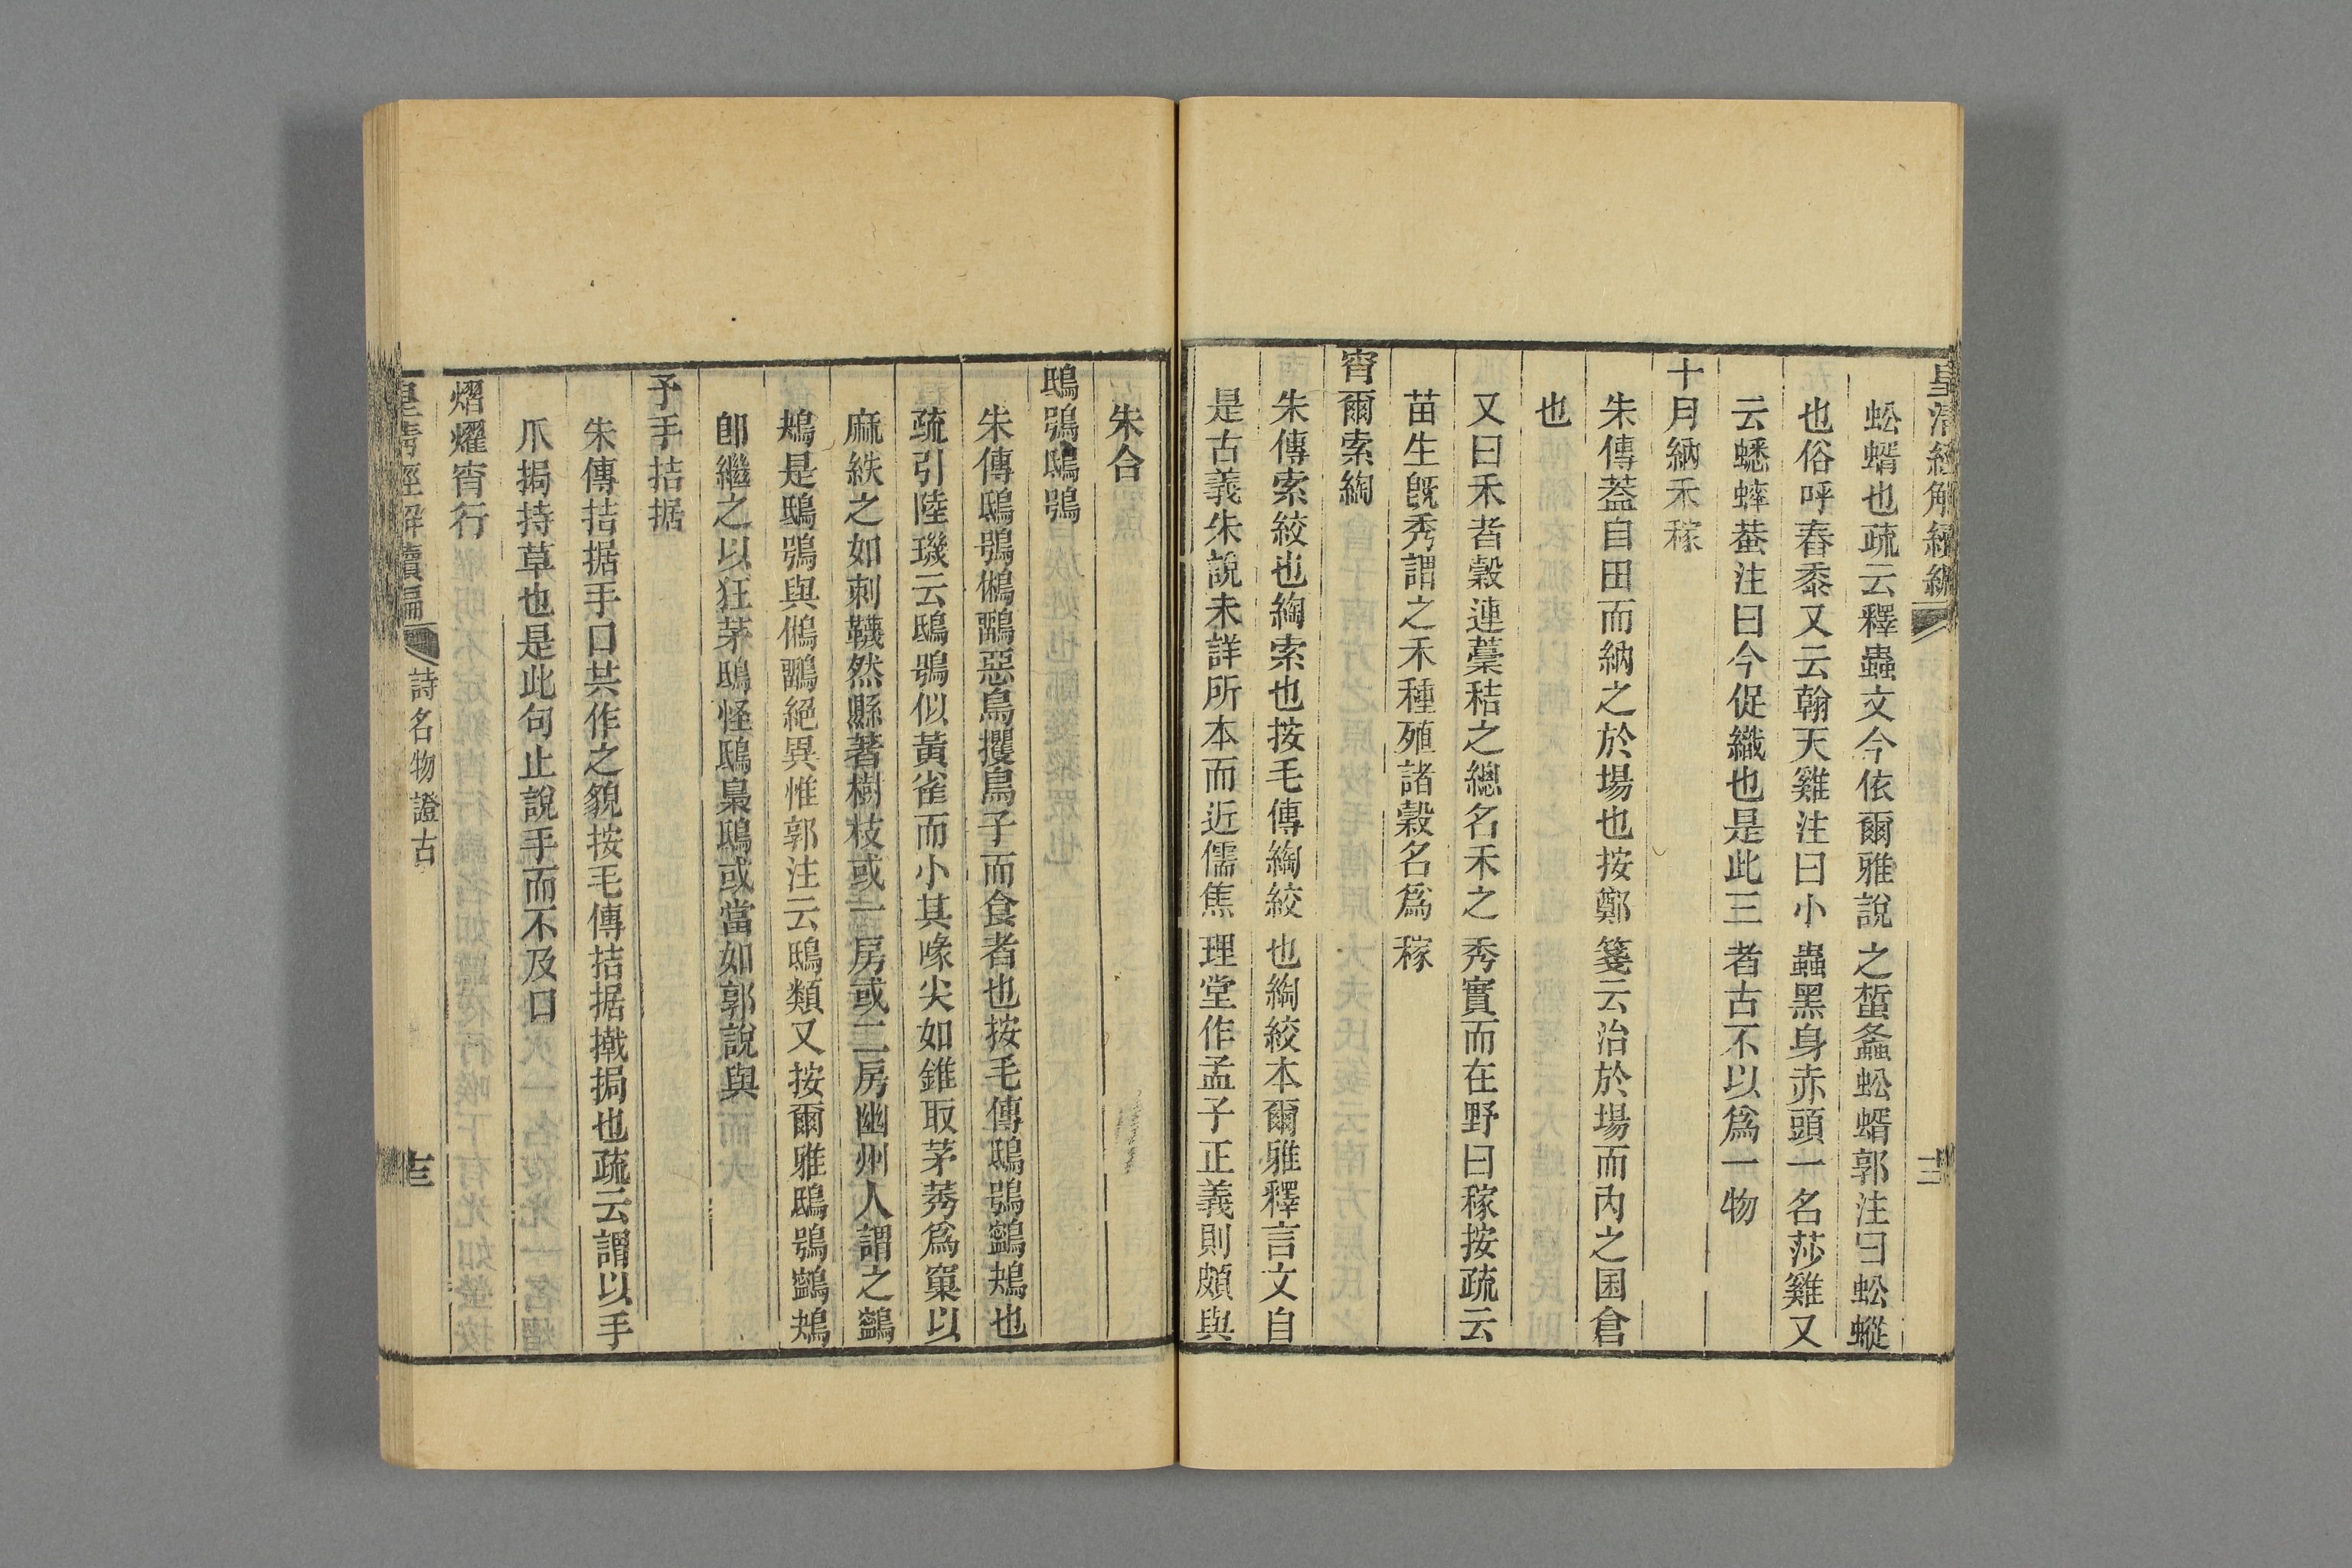 皇清經解續編
蚣蝑也疏云釋蟲文今依爾雅說之蜤螽蚣蝑郭注曰蚣蝑
也俗呼春黍又云翰天雞注曰小蟲黑身赤頭一名莎雞又
云蟋蟀蛬注曰今促織也是此三者古不以爲一物
十月納禾稼
朱傳蓋自田而納之於場也按鄭箋云治於場而內之囷倉
也
又曰禾者穀連藁秸之總名禾之秀實而在野曰稼按疏云
苗生旣秀謂之禾種殖諸穀名爲稼
宵爾索綯
朱傳索絞也綯索也按毛傳綯絞也綯絞本爾雅釋言文自
是古義朱說未詳所本而近儒焦理堂作孟子正義則頗與
朱合
鴟鴞鴟鴞
朱傳鴟鴞鵂鶹惡鳥攫鳥子而食者也按毛傳鴟鴞鸋鴂也
疏引陸璣云鴟鴞似黃雀而小其喙尖如錐取茅莠爲窠以
麻紩之如刺韈然縣著樹枝或一房或二房幽州人謂之鸋
鴂是鴟鴞與鵂鶹絕異惟郭注云鴟類又按爾雅鴟鴞鸋鴂
卽繼之以狂茅鴟怪鴟梟鴟或當如郭說與
予手拮据
朱傳拮据手口共作之貌按毛傳拮据撠挶也疏云謂以手
爪挶持草也是此句止說手而不及口
熠燿宵行
皇清經解續編
詩名物證古